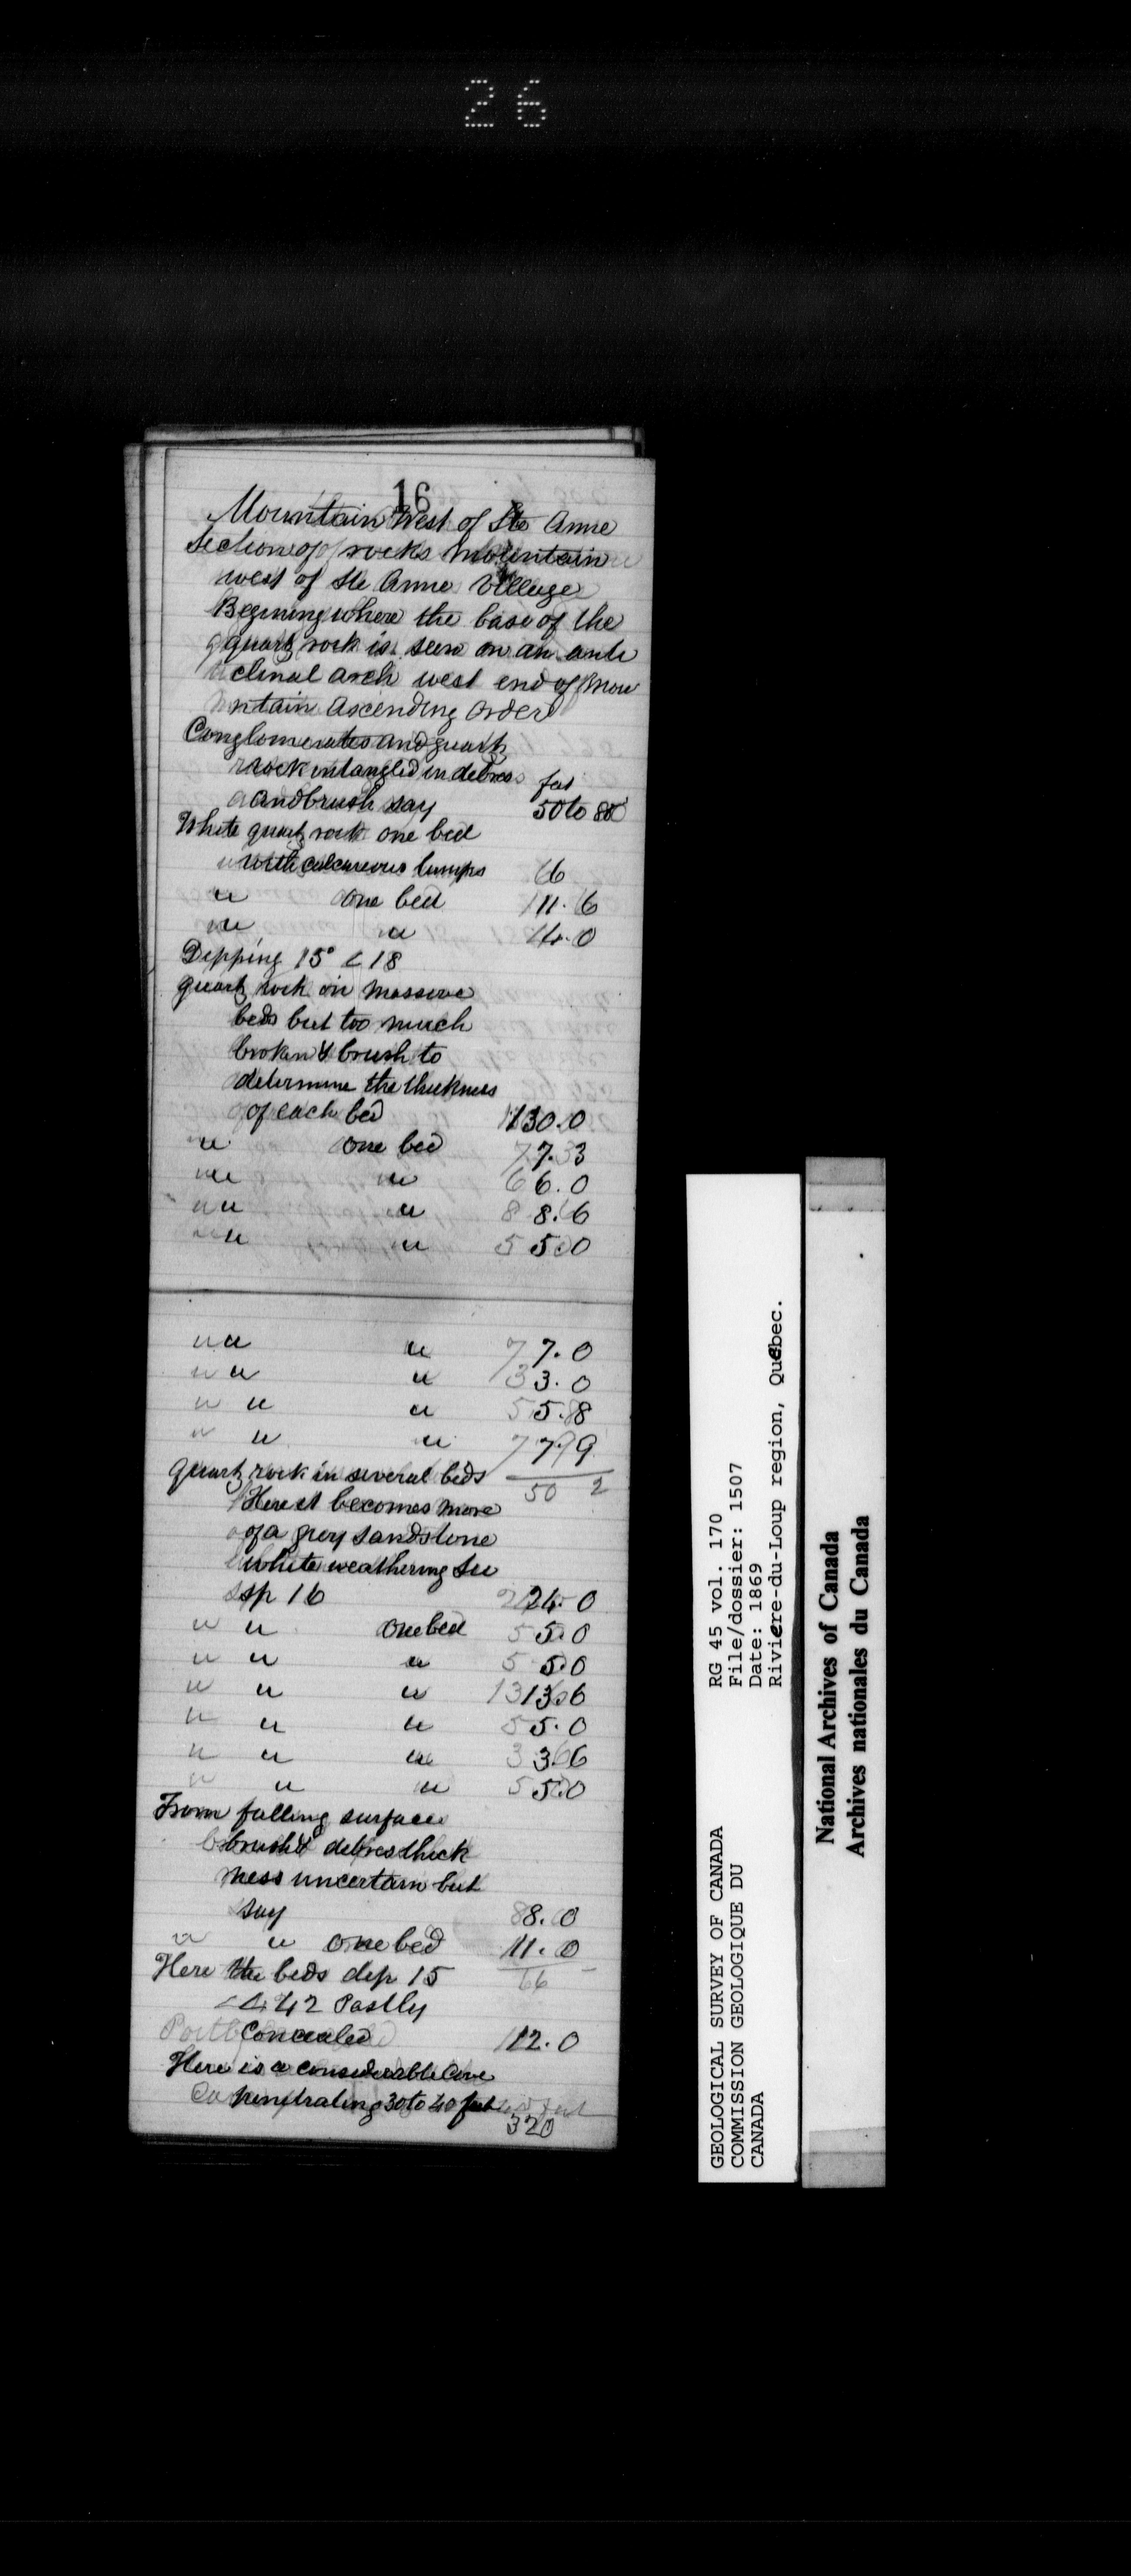 26
16
Mountain West of Ste Anne
Section of rocks mountain
west of Ste Anne Village
Begining where the base of the
quartz rock is seen on an anti
clinal arch west end of Mou
ntain ascending order
Conglomerates and quartz
rock entangled in debres feet
and brush say 50 to 80
White quartz rock one bed
with calcareous lumps 6
" one bed 11.6
" " 4.0
Dipping 15° < 18
quartz rock in massive
beds but too much
broken & brush to
determine the thickness
of each bed 130.0
" one bed 7.3
" " 6.0
" " " 8.6
" " " 5.0
" " " 7.0
" " " 3.0
" " " 5.8
" " " 7.9
quartz rock in several beds 50 2
Here it becomes more
of a grey sandstone
white weathering see
sp 16 24.0
" " one bed 5.0
" " " 5.0
" " " 13.6
" " " 5.0
" " " 3.6
" " " 5.0
From falling surface
brush & debres thick
ness uncertain but
say 8.0
" " one bed 11.0
Here the beds dip 15 66
< 42 Partly
Concealed 12.0
Here is a considerable Cave
penetrating 30 to 40 feet
320
GEOLOGICAL SURVEY OF CANADA
COMMISSION GEOLOGIQUE DU
CANADA
RG 45 vol. 170
File/dossier: 1507
Date: 1869
Riviere-du-Loup region, Quebec.
National Archives of Canada
Archives nationales du Canada